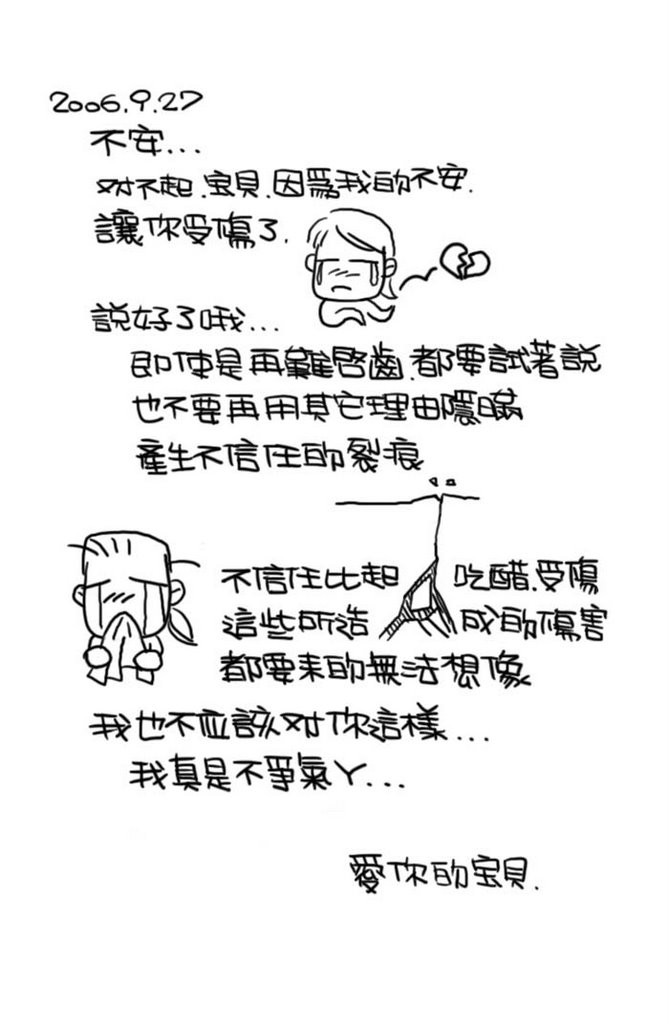 2006.9.27
不安...
对不起.宝贝.因為我的不安.
讓你受傷了.
説好了哦...
即使是再難啓齒.都要試著説
也不要再用其它理由隱瞞
產生不信任的裂痕
不信任比起 吃醋.受傷
這些所造 成的傷害
都要来的無法想像
我也不应該对你這樣...
我真是不爭氣丫...
愛你的宝贝.